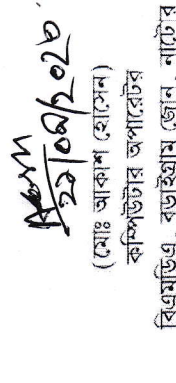 ২১/০৬/২০২৩
(মোঃ আকাশ হোসেন)
কম্পিউটার অপারেটর
বিএমডিএ, বড়াইগ্রাম জোন, নাটোর